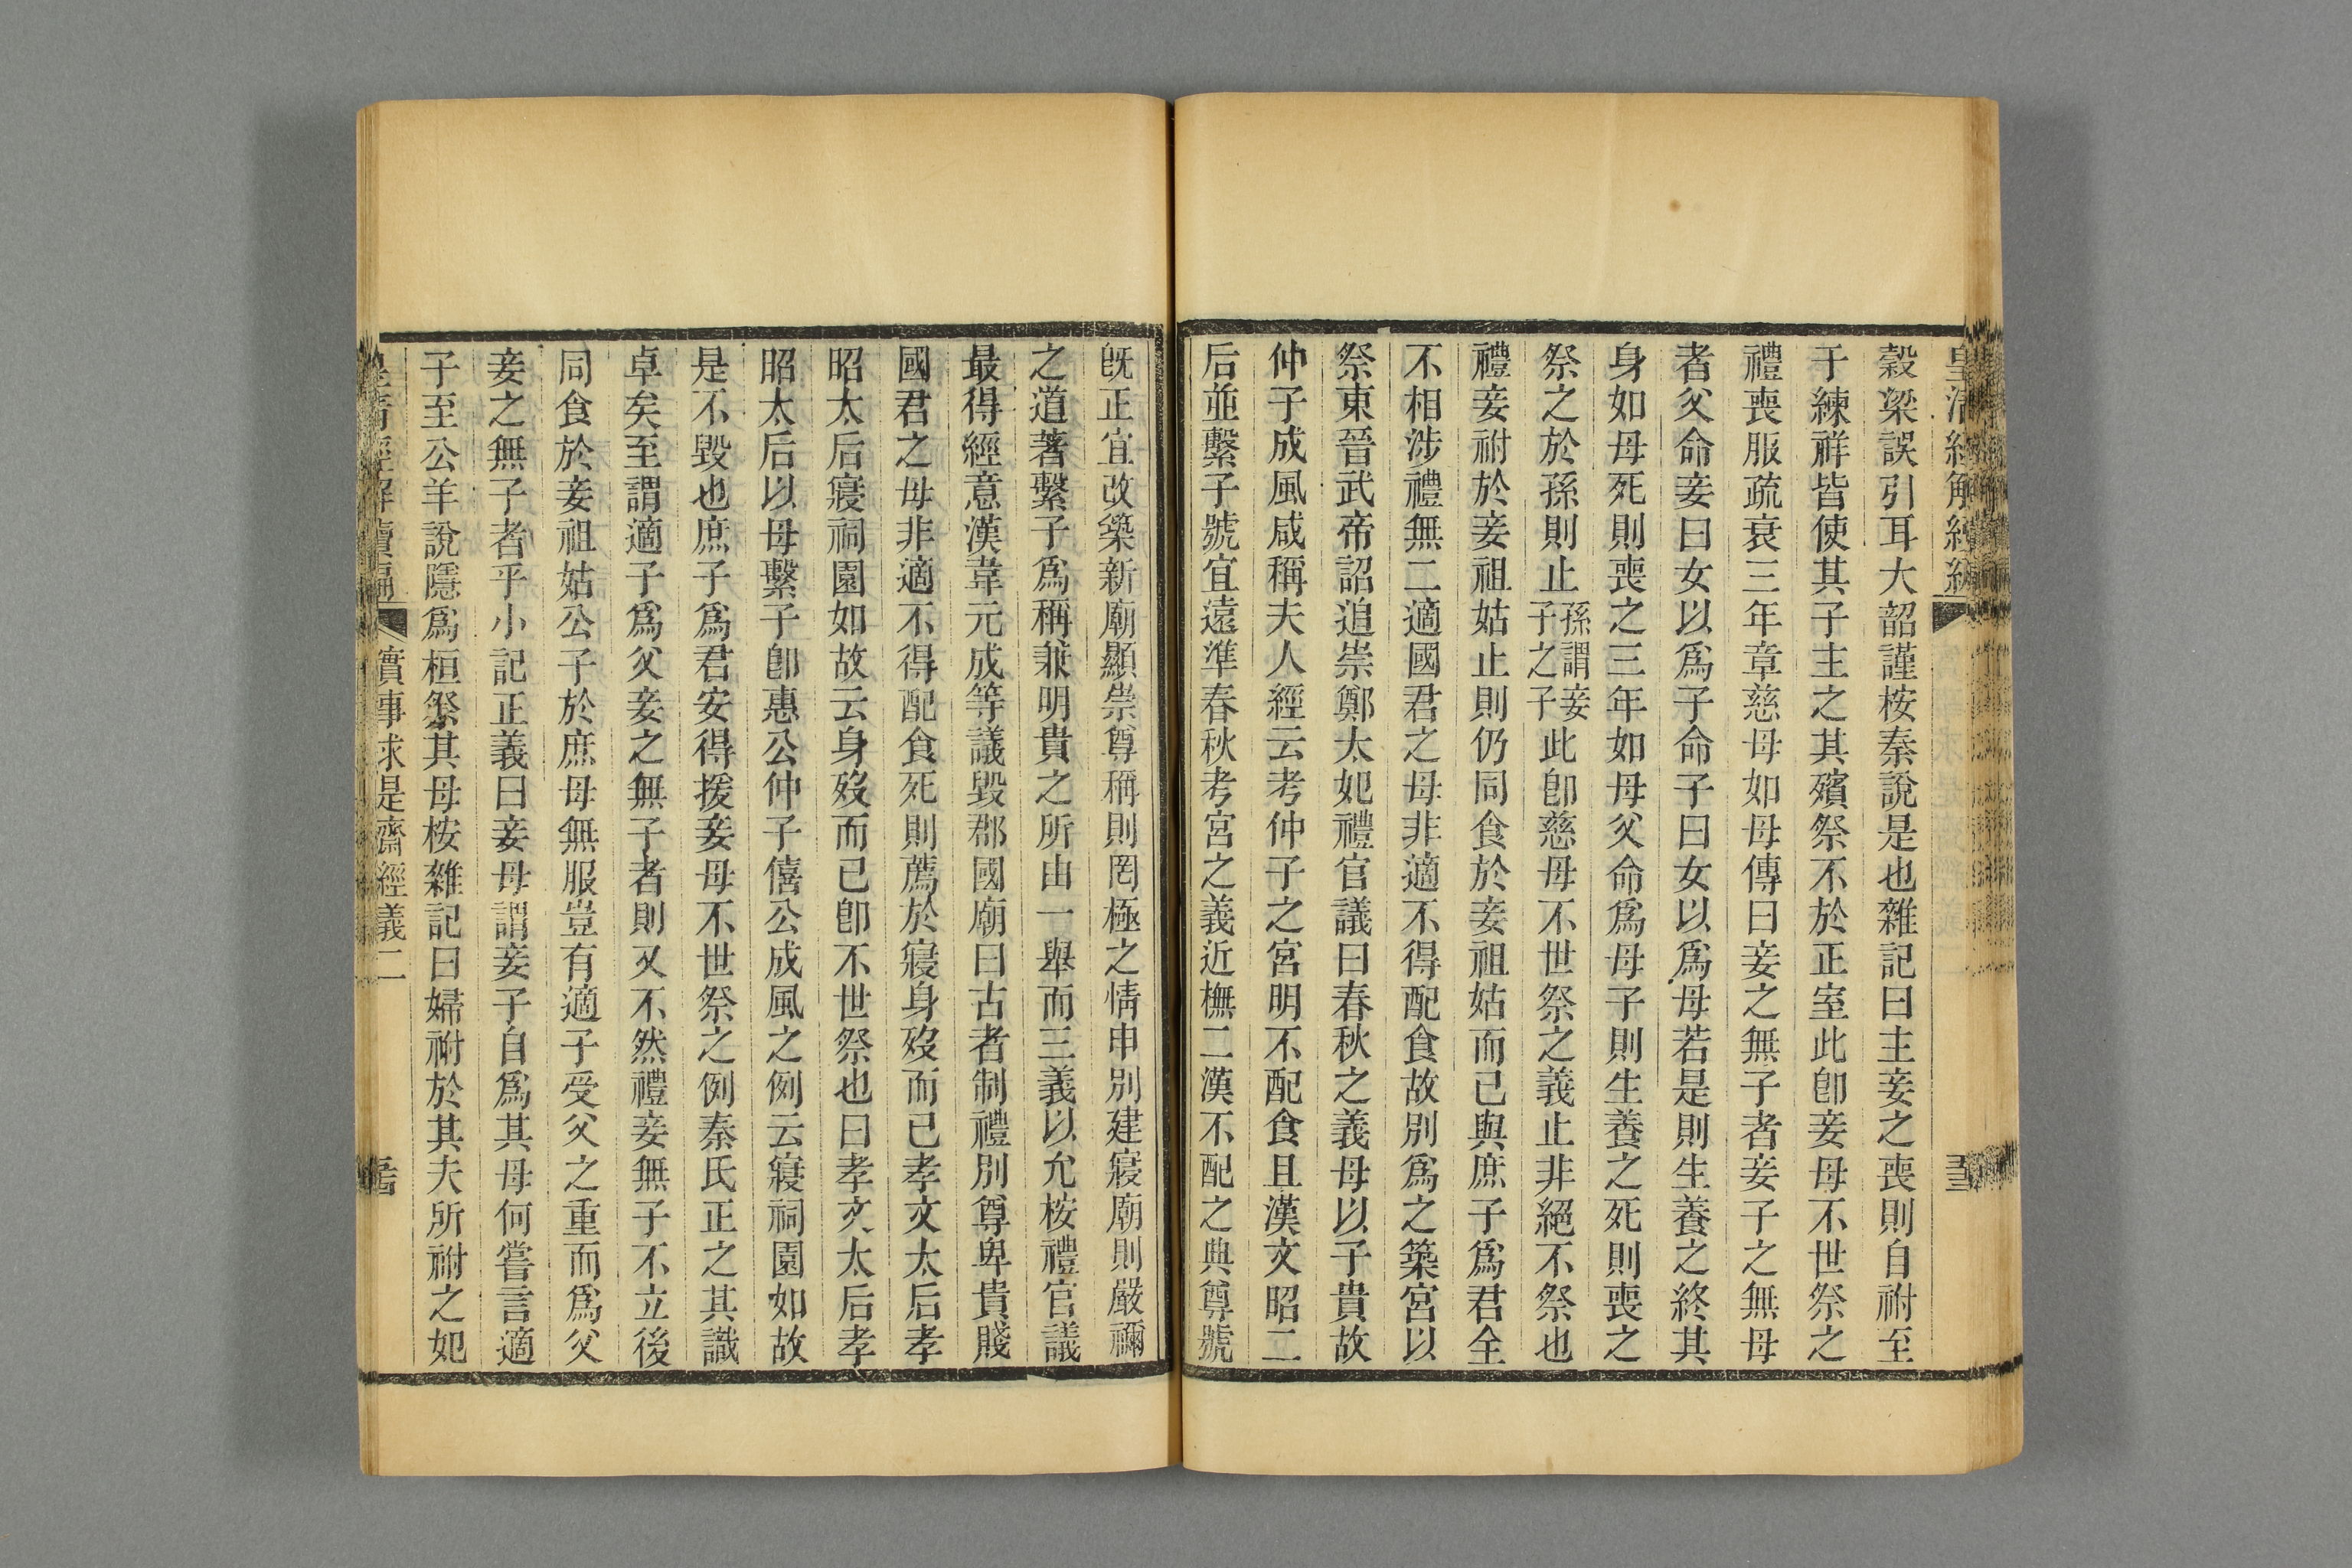 皇清經解續編
穀梁誤引耳大韶謹桉秦說是也雜記曰主妾之喪則自祔至
于練祥皆使其子主之其殯祭不於正室此卽妾母不世祭之
禮喪服疏衰三年章慈母如母傳曰妾之無子者妾子之無母
者父命妾曰女以爲子命子曰女以爲母若是則生養之終其
身如母死則喪之三年如母父命爲母子則生養之死則喪之
祭之於孫則止孫謂妾子之子此卽慈母不世祭之義止非絕不祭也
禮妾祔於妾祖姑止則仍同食於妾祖姑而已與庶子爲君全
不相涉禮無二適國君之母非適不得配食故別爲之築宮以
祭東晉武帝詔追崇鄭太妃禮官議曰春秋之義母以子貴故
仲子成風咸稱夫人經云考仲子之宮明不配食且漢文昭二
后並繫子號宜遠準春秋考宮之義近橅二漢不配之典尊號
旣正宜改築新廟顯崇尊稱則罔極之情申別建寢廟則嚴禰
之道著繫子爲稱兼明貴之所由一舉而三義以允桉禮官議
最得經意漢韋元成等議毀郡國廟曰古者制禮別尊卑貴賤
國君之母非適不得配食死則薦於寢身歿而已孝文太后孝
昭太后寢祠園如故云身歿而已卽不世祭也曰孝文太后孝
昭太后以母繫子卽惠公仲子僖公成風之例云寢祠園如故
是不毀也庶子爲君安得援妾母不世祭之例秦氏正之其識
卓矣至謂適子爲父妾之無子者則又不然禮妾無子不立後
同食於妾祖姑公子於庶母無服豈有適子受父之重而爲父
妾之無子者乎小記正義曰妾母謂妾子自爲其母何嘗言適
子至公羊說隱爲桓祭其母桉雜記曰婦祔於其夫所祔之妃
皇清經解續編 實事求是齋經義二